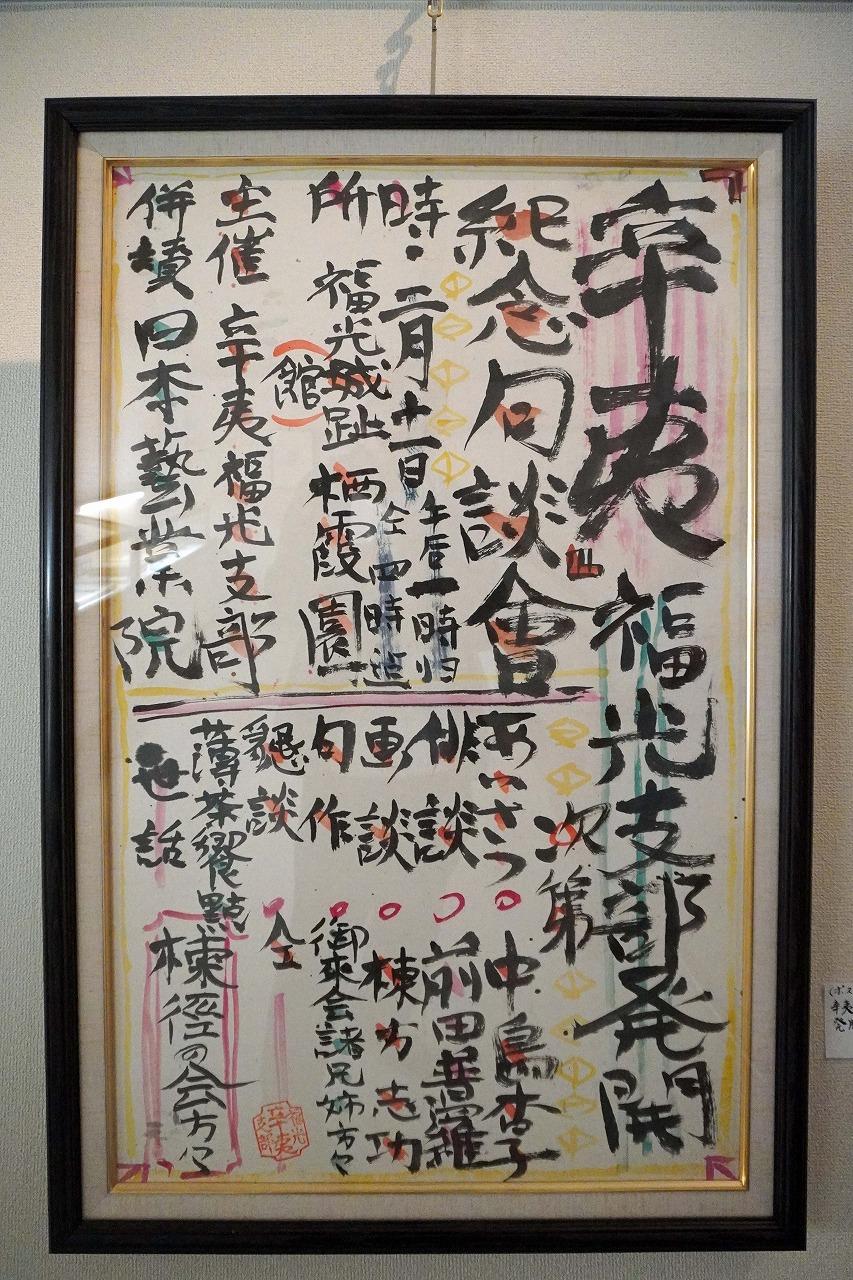 辛夷福光支部発開
紀念句談會
時・二月十一日
午后一時ヨリ
仝四時迄
所 福光城趾栖霞園
(館)
主催 辛夷福光支部
併賛日本藝業院
次第
あいさつ○中島杏子
俳談○前田普羅
画談○棟方志功
句作○御来会諸兄姉方々
懇談○仝
薄茶饗點
世話 棟径の会方々
福光
辛夷
支部